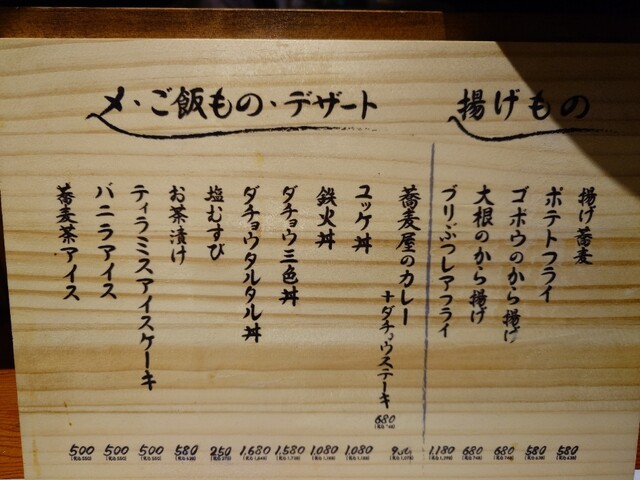 揚げもの
揚げ蕎麦
580
ポテトフライ
580
ゴボウのから揚げ
680
大根のから揚げ
680
ブリぶつレアフライ
1,180
〆・ご飯もの・デザート
蕎麦屋のカレー
+ダチョウステーキ
680
ユッケ丼
1,080
鉄火丼
1,080
ダチョウ三色丼
1,580
ダチョウタルタル丼
1,680
塩むすび
250
お茶漬け
580
ティラミスアイスケーキ
500
バニラアイス
500
蕎麦茶アイス
500